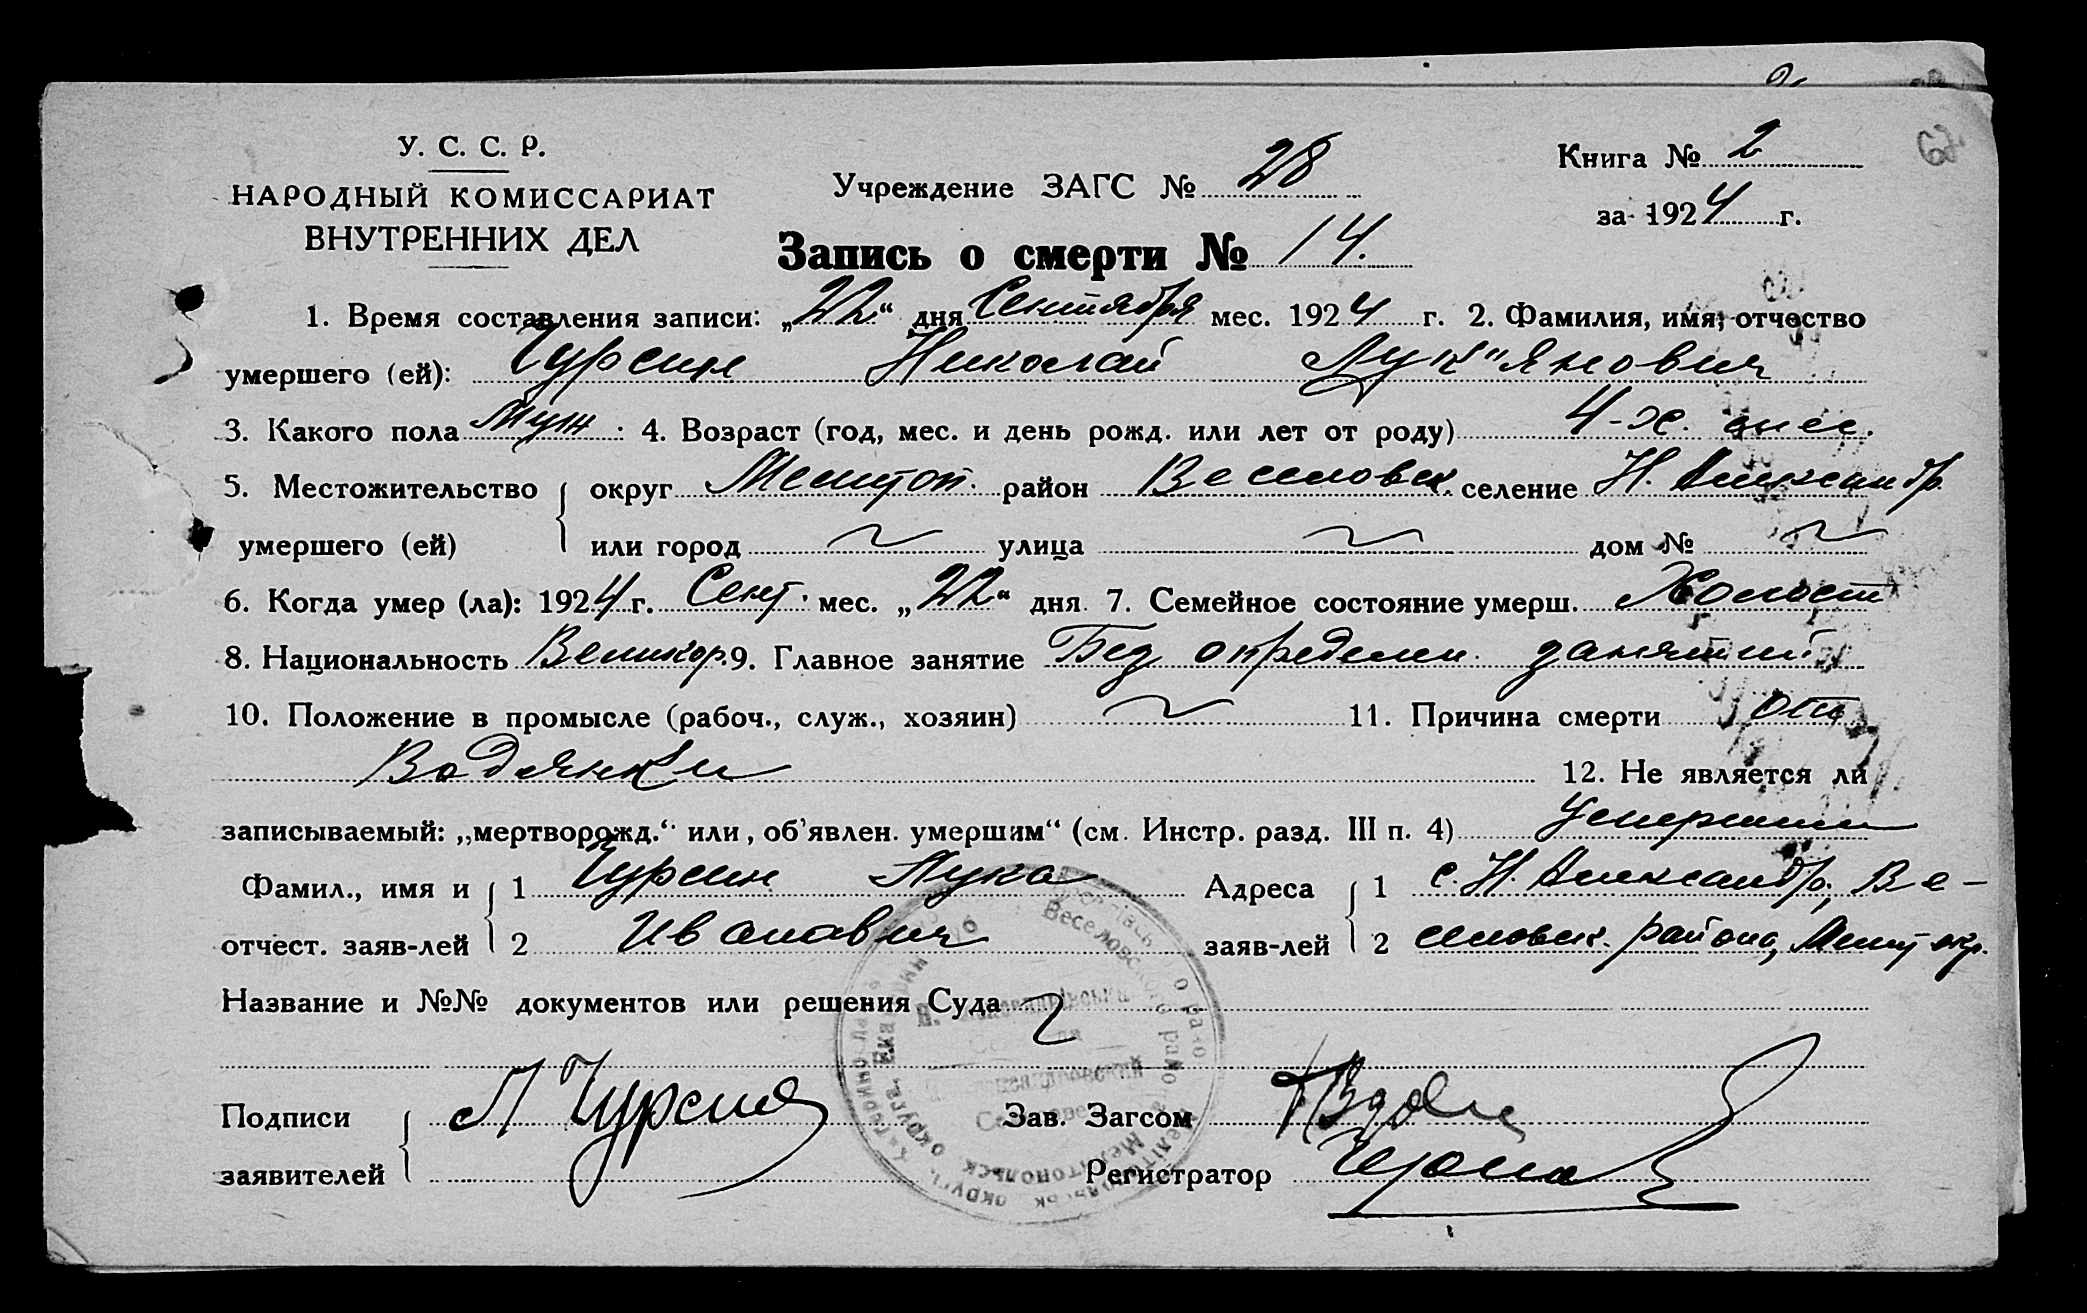 У. С. С. Р.
НАРОДНЫЙ КОМИССАРИАТ
ВНУТРЕННИХ ДЕЛ
Учреждение ЗАГС № 28
Книга № 2
за 1924 г.
Запись о смерти № 14.
1. Время составления записи: „22“ дня Сентября мес. 1924 г. 2. Фамилия, имя, отчество
умершего (ей): Чурсин Николай Лук"янович
3. Какого пола Муж : 4. Возраст (год, мес. и день рожд. или лет от роду) 4-х. мес.
5. Местожительство округ Мелитоп. район Веселовск. селение Н. Александр.
умершего (ей) или город улица дом №
6. Когда умер (ла): 1924 г. Сент. мес. „22“ дня 7. Семейное состояние умерш. Холост
8. Национальность Великор. 9. Главное занятие Без определен. занятий
10. Положение в промысле (рабоч., служ., хозяин) 11. Причина смерти от
Водянки 12. Не является ли
записываемый: „мертворожд.“ или „об'явлен. умершим“ (см. Инстр. разд. III п. 4) Умершим
Фамил., имя и 1 Чурсин Лука Адреса 1 с. Н. Александр., Ве-
отчест. заяв-лей 2 Иванович заяв-лей 2 селовск. района, Мелит окр.
Название и №№ документов или решения Суда
Подписи Л Чурсин Зав. Загсом
заявителей Регистратор